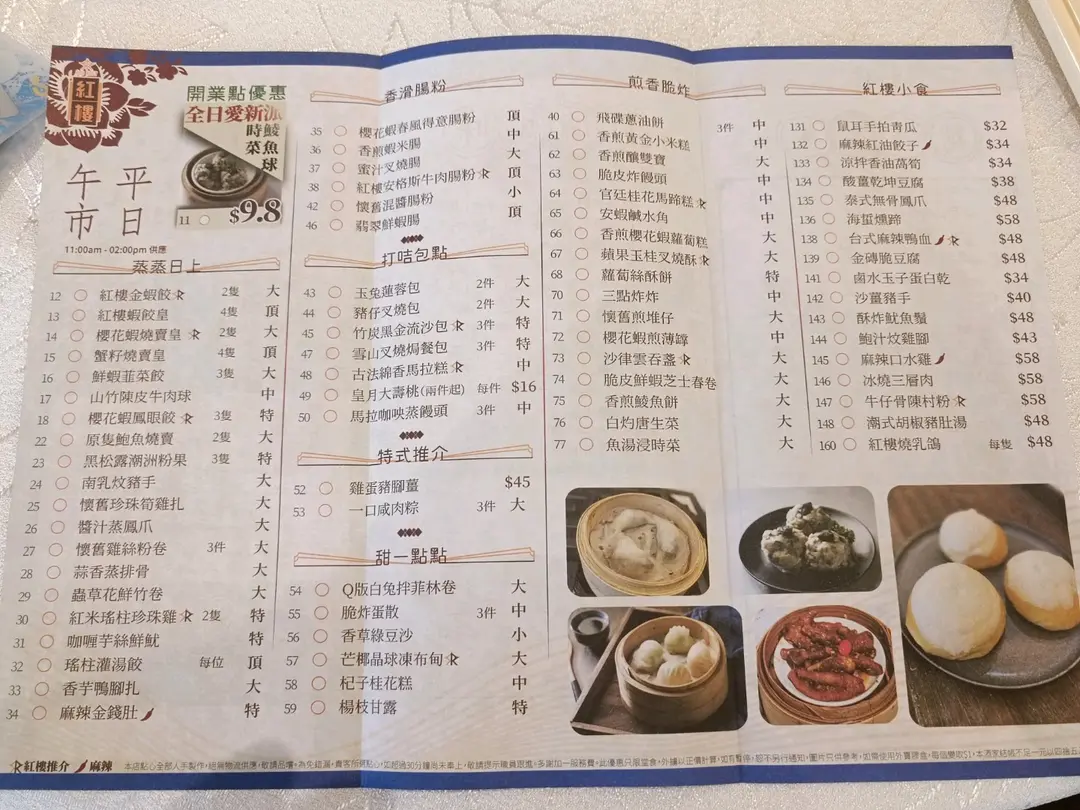 紅樓
平日
午市
11:00am - 02:00pm 供應
開業點優惠
全日愛新派
時菜鯪魚球
11 ○ $9.8
蒸蒸日上
12 ○ 紅樓金蝦餃 2隻 大
13 ○ 紅樓蝦餃皇 4隻 頂
14 ○ 櫻花蝦燒賣皇 2隻 大
15 ○ 蟹籽燒賣皇 4隻 頂
16 ○ 鮮蝦韮菜餃 3隻 大
17 ○ 山竹陳皮牛肉球 中
18 ○ 櫻花蝦鳳眼餃 3隻 特
22 ○ 原隻鮑魚燒賣 2隻 大
23 ○ 黑松露潮洲粉果 3隻 特
24 ○ 南乳炆豬手 大
25 ○ 懷舊珍珠筍雞扎 大
26 ○ 醬汁蒸鳳爪 大
27 ○ 懷舊雞絲粉卷 3件 大
28 ○ 蒜香蒸排骨 大
29 ○ 蟲草花鮮竹卷 大
30 ○ 紅米瑤柱珍珠雞 2隻 特
31 ○ 咖喱芋絲鮮魷 特
32 ○ 瑤柱灌湯餃 每位 頂
33 ○ 香芋鴨腳扎 大
34 ○ 麻辣金錢肚 特
香滑腸粉
35 ○ 櫻花蝦春風得意腸粉 頂
36 ○ 香煎蝦米腸 中
37 ○ 蜜汁叉燒腸 大
38 ○ 紅樓安格斯牛肉腸粉 頂
42 ○ 懷舊混醬腸粉 小
46 ○ 翡翠鮮蝦腸 頂
打咭包點
43 ○ 玉兔蓮蓉包 2件 大
44 ○ 豬仔叉燒包 2件 大
45 ○ 竹炭黑金流沙包 3件 特
47 ○ 雪山叉燒焗餐包 3件 特
48 ○ 古法綿香馬拉糕 中
49 ○ 皇月大壽桃(兩件起) 每件 $16
50 ○ 馬拉咖央蒸饅頭 3件 中
特式推介
52 ○ 雞蛋豬腳薑 $45
53 ○ 一口咸肉粽 3件 大
甜一點點
54 ○ Q版白兔拌菲林卷 大
55 ○ 脆炸蛋散 3件 中
56 ○ 香草綠豆沙 小
57 ○ 芒椰晶球凍布甸 大
58 ○ 杞子桂花糕 中
59 ○ 楊枝甘露 特
煎香脆炸
40 ○ 飛碟蔥油餅 3件 中
61 ○ 香煎黃金小米糕 中
62 ○ 香煎釀雙寶 大
63 ○ 脆皮炸饅頭 中
64 ○ 官廷桂花馬蹄糕 中
65 ○ 安蝦鹹水角 中
66 ○ 香煎櫻花蝦蘿蔔糕 大
67 ○ 蘋果玉桂叉燒酥 大
68 ○ 蘿蔔絲酥餅 特
70 ○ 三點炸炸 中
71 ○ 懷舊煎堆仔 大
72 ○ 櫻花蝦煎薄罉 中
73 ○ 沙律雲吞盞 大
74 ○ 脆皮鮮蝦芝士春卷 大
75 ○ 香煎鯪魚餅 大
76 ○ 白灼唐生菜 大
77 ○ 魚湯浸時菜 大
紅樓小食
131 ○ 鼠耳手拍靑瓜 $32
132 ○ 麻辣紅油餃子 $34
133 ○ 涼拌香油萵筍 $34
134 ○ 酸薑乾坤豆腐 $38
135 ○ 泰式無骨鳳爪 $48
136 ○ 海蜇燻蹄 $58
138 ○ 台式麻辣鴨血 $48
139 ○ 金磚脆豆腐 $48
141 ○ 鹵水玉子蛋白乾 $34
142 ○ 沙薑豬手 $40
143 ○ 酥炸魷魚鬚 $48
144 ○ 鮑汁炆雞腳 $43
145 ○ 麻辣口水雞 $58
146 ○ 冰燒三層肉 $58
147 ○ 牛仔骨陳村粉 $58
148 ○ 潮式胡椒豬肚湯 $48
160 ○ 紅樓燒乳鴿 每隻 $48
紅樓推介 麻辣